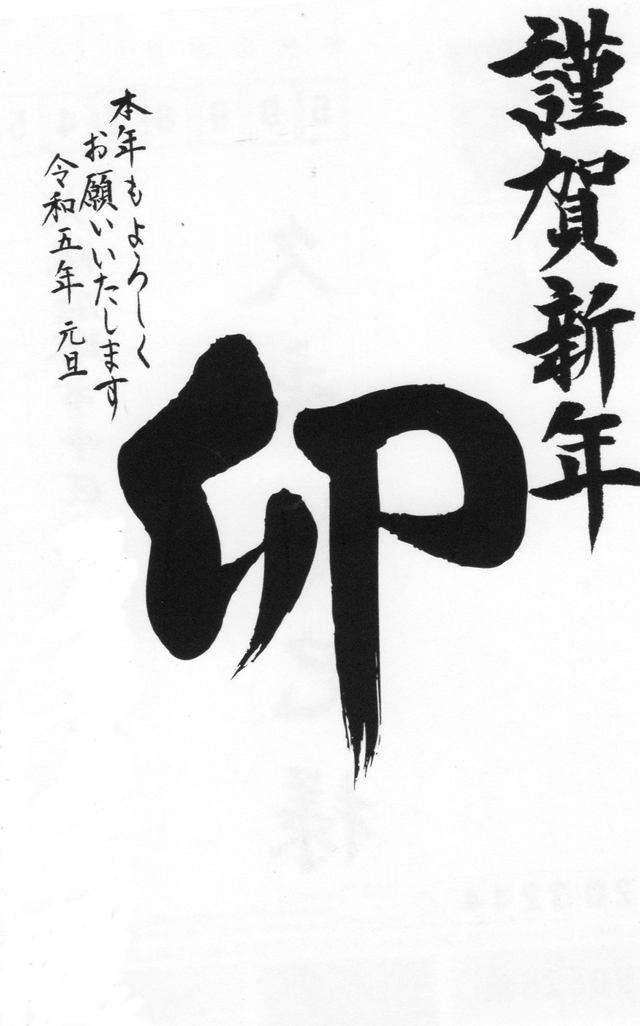 謹賀新年
卯
本年もよろしく
お願いいたします
令和五年 元旦